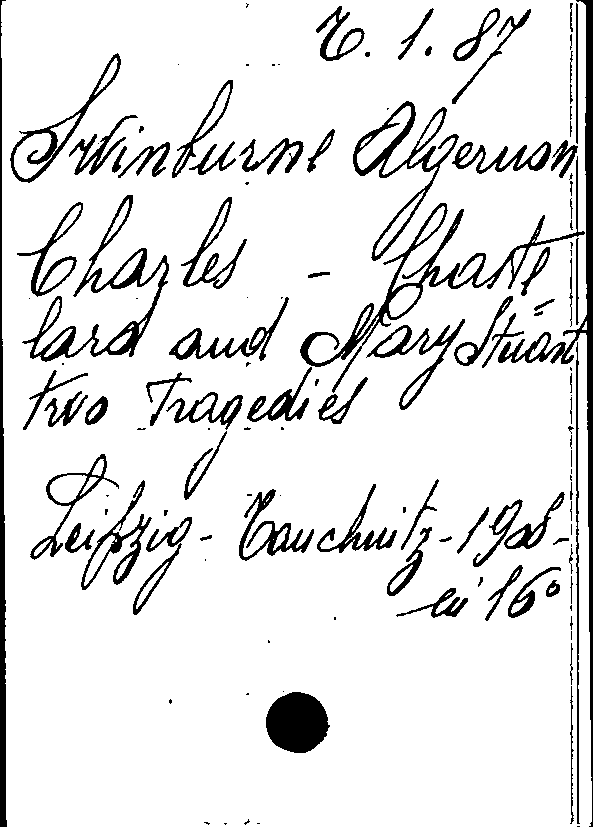 T. 1. 87
Swinburne Algernon
Charles - Chaste
lard and Mary Stuart
two Tragedies
Leipzig - Tauchnitz - 1908 -
in 16°